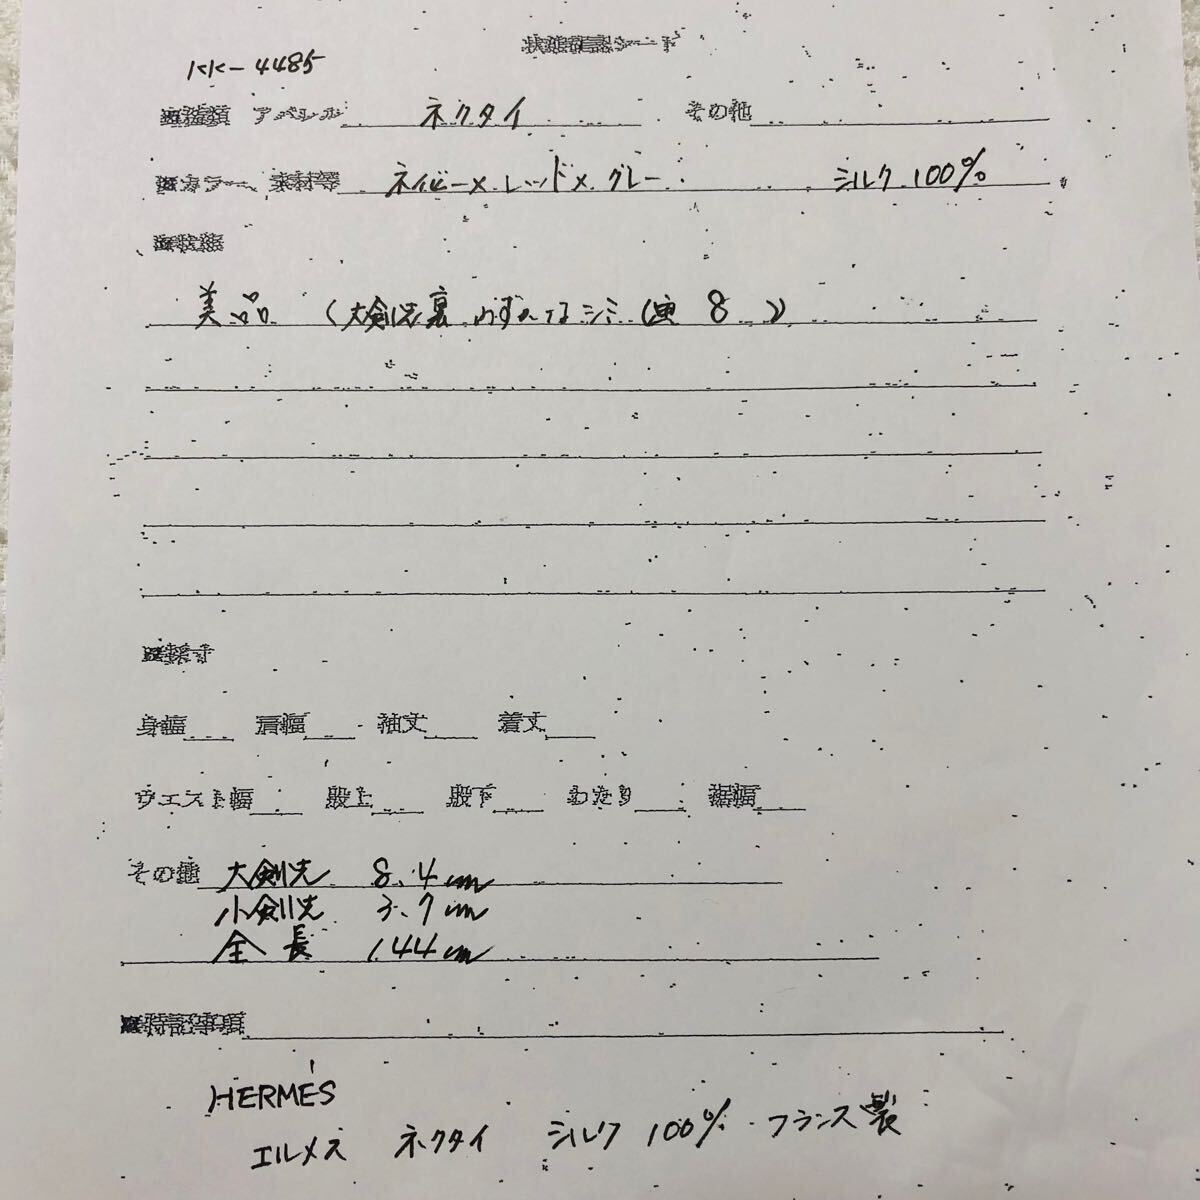 状態確認シート
KK-4485
■種類 アパレル ネクタイ その他
■カラー、素材等 ネイビー×レッド×グレー シルク 100%
■状態
美品 (大剣先裏 わずかなシミ(画 8 )
■採寸
身幅 肩幅 袖丈 着丈
ウエスト幅 股上 股下 わたり 裾幅
その他 大剣先 8.4cm
小剣先 3.7cm
全長 144cm
■特記事項
HERMÈS
エルメス ネクタイ シルク 100% フランス製